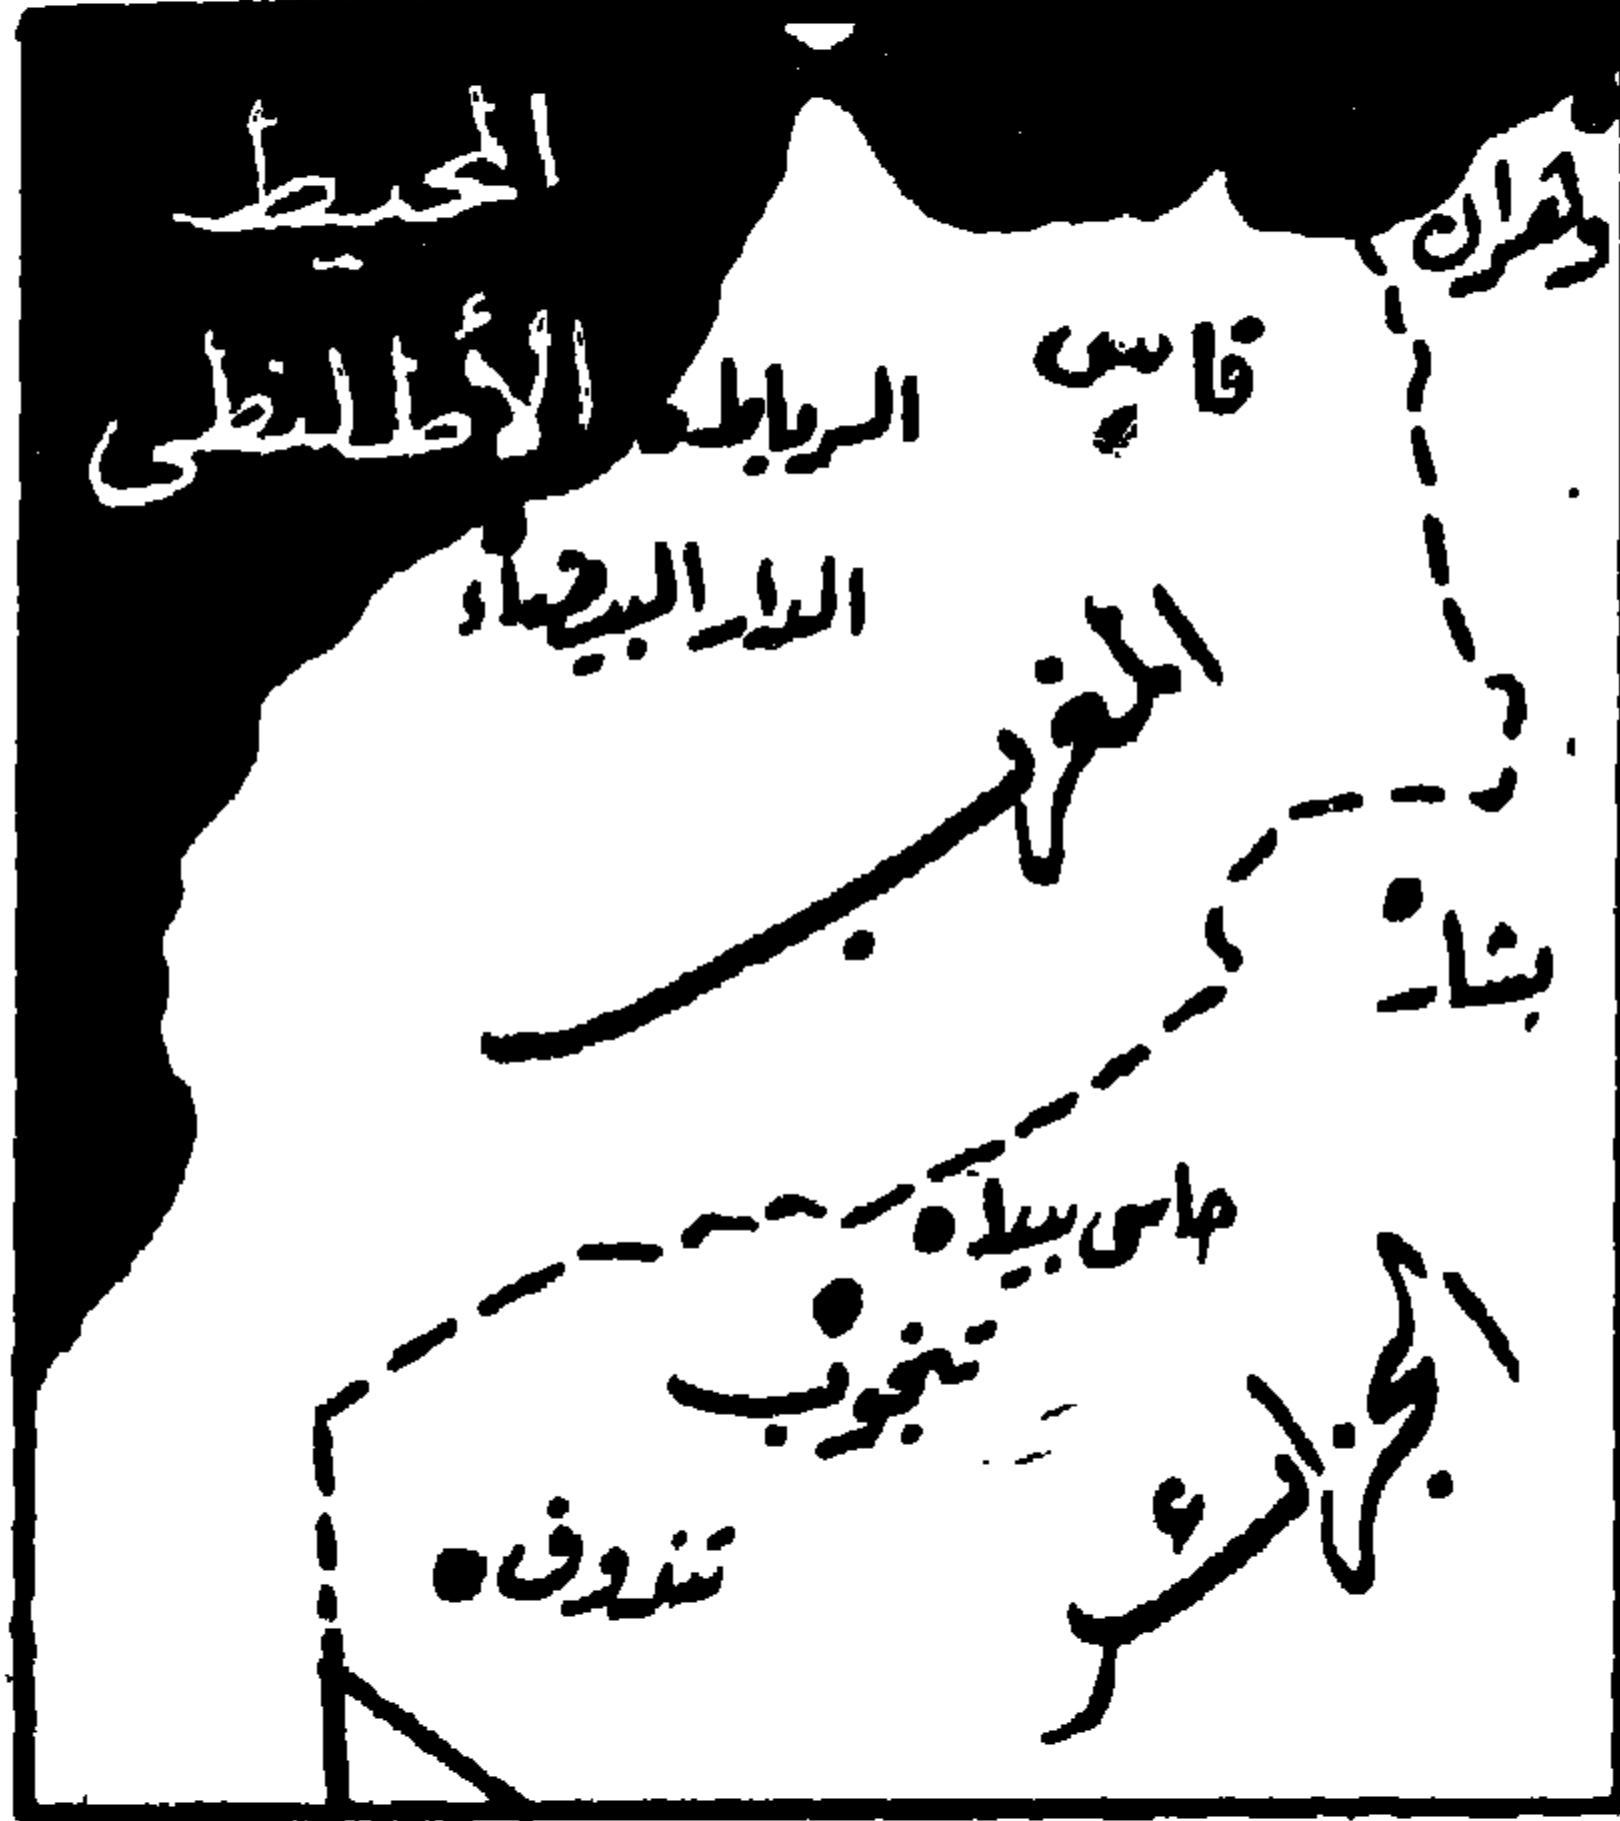 المحيط
الأطلنطى
وهران
فاس
الرباط
الدار البيضاء
المغرب
بشار
حاسى بيضا
تنجوب
تندوف
الجزائر